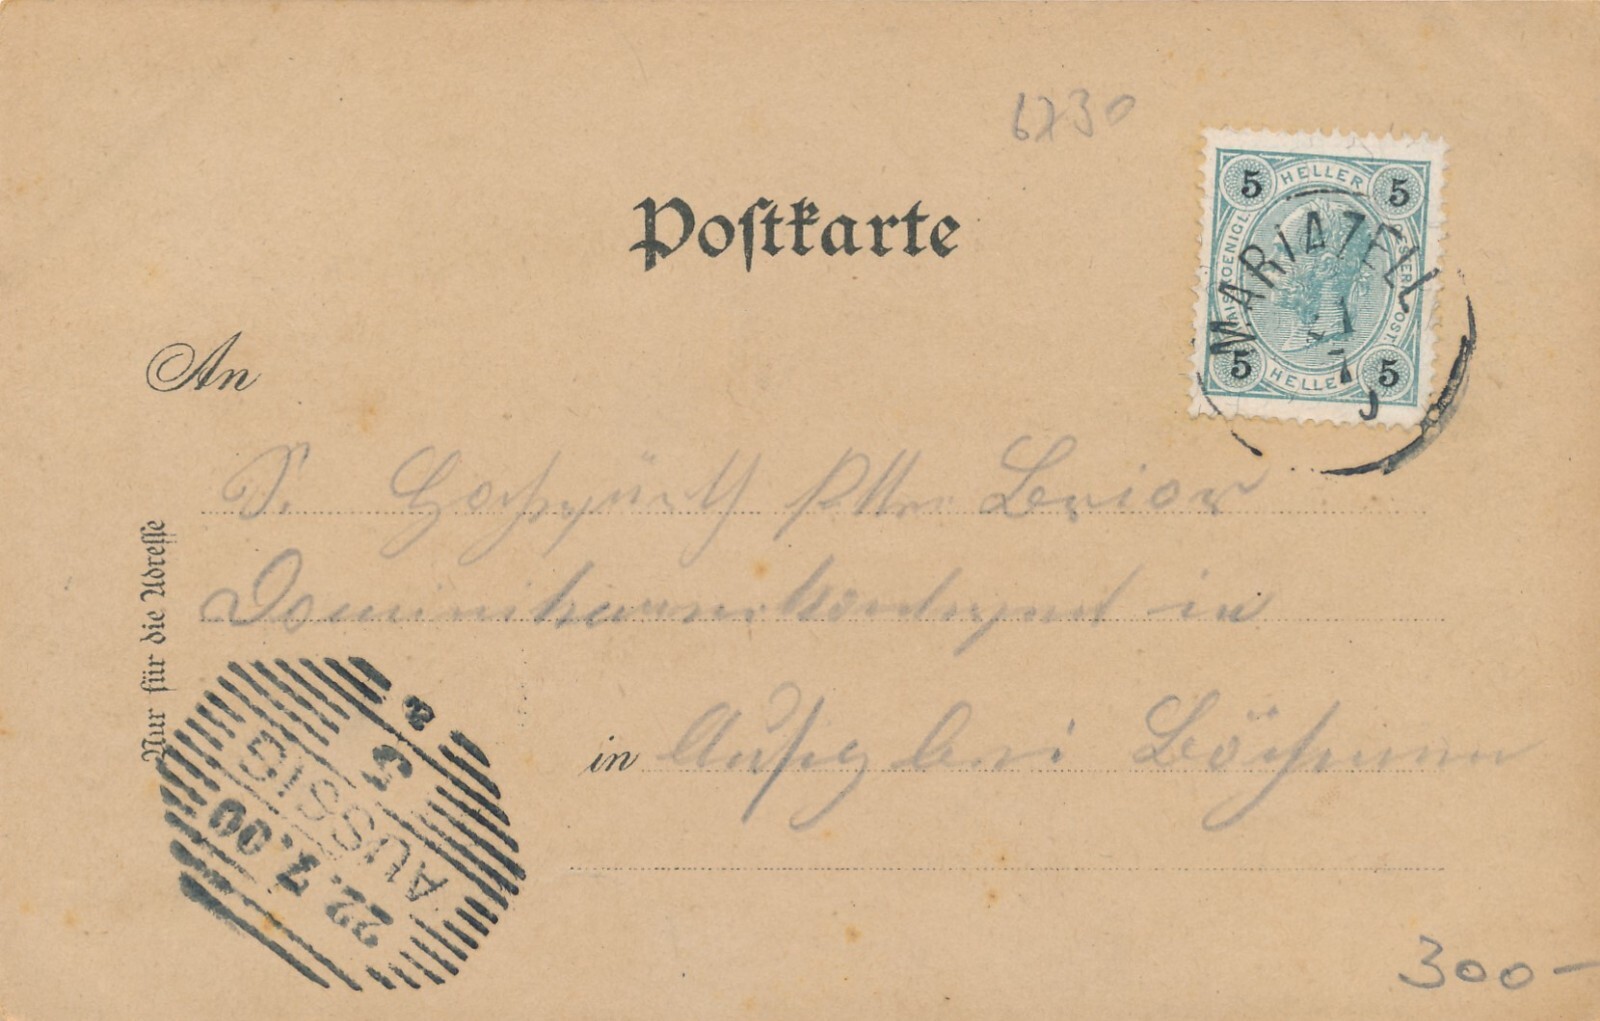 6730
Postkarte
5 HELLER 5
KAIS. KOENIGL. OESTERR. POST.
5 HELLER 5
MARIAZELL
21
7
An
S. Hochw
Dominikanerkonvent in
in Aussig bei Böhmen
Nur für die Adresse
AUSSIG
22.7.00
5
300-